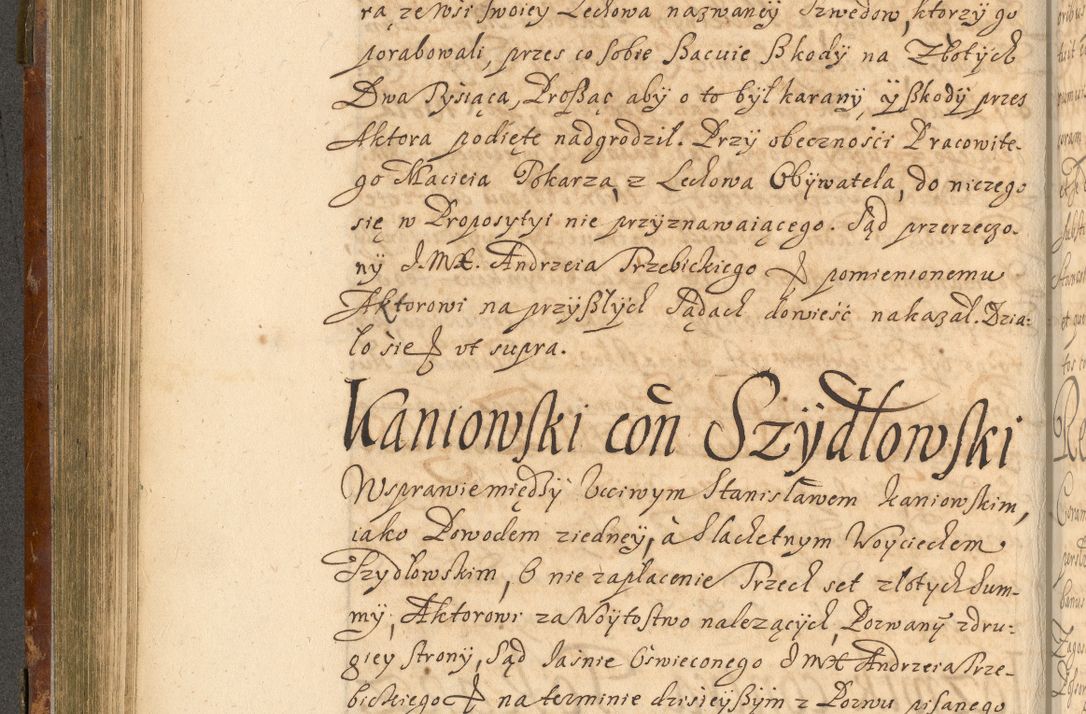 rą ze wsi swoiey Lechowa nazwaney Szwedow, ktorzy go
porabowali, przes co sobie szacuie szkody na Złotych
Dwa Tysiąca, Prosząc aby o to był karany, y szkody przes
Aktora podięte nadgrodził. Przy obecznosci Pracowite-
go Macieia Pokarza, z Lechowa Obywatela, do niczego
się w Propozytyi nie przyznawaiącego. Sąd przerzeczo-
ny J. MX. Andrzeia Trzebickiego & pomienionemu
Aktorowi na przyszłych Sądach dowieść nakazał. Dzia-
ło sie & vt supra.
Kaniowski con Szydłowski
W sprawie między Vcciwym Stanisławem Kaniowskim,
iako Powodem z iedney, à Slachetnym Woyciechem
Szydłowskim, O nie zapłacenie Trzech set złotych Sum-
my, Aktorowi za Woytostwo należących, Pozwany z dru-
giey strony, Sąd Jaśnie Oswieconego J MX Andrzeia Trze-
bickiego & na terminie dzisieyszym z Pozwu pisanego